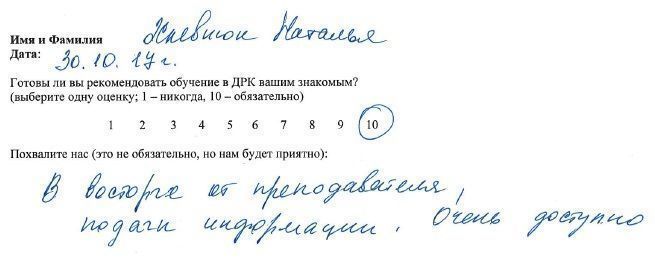 Имя и Фамилия Хлевнюк Наталья
Дата: 30.10.17г.
Готовы ли вы рекомендовать обучение в ДРК вашим знакомым?
(выберите одну оценку; 1 – никогда, 10 – обязательно)
1 2 3 4 5 6 7 8 9 10
Похвалите нас (это не обязательно, но нам будет приятно):
В восторге от преподавателя,
подачи информации. Очень доступно